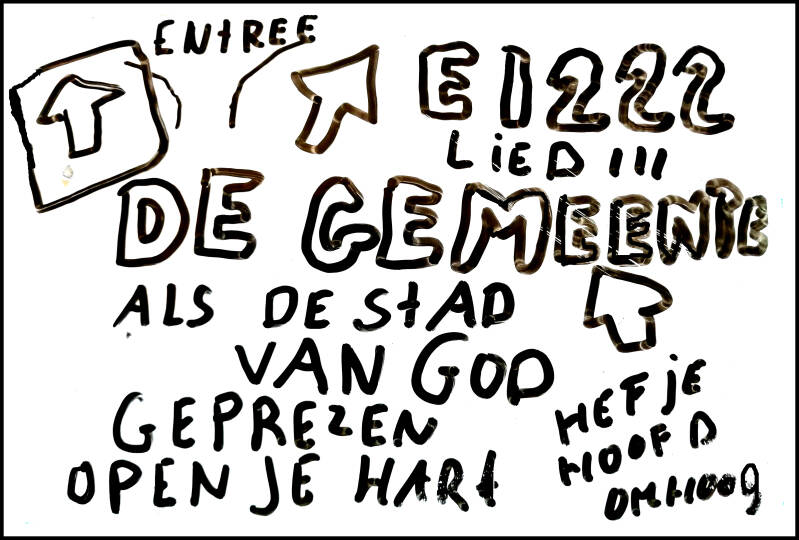 ENtREE
E1222
LiED III
DE GEMEENTE
ALS DE StAD
VAN GOD
GEPREZEN
OPEN JE HARt
HEF jE
HOOFD
OMHOOg